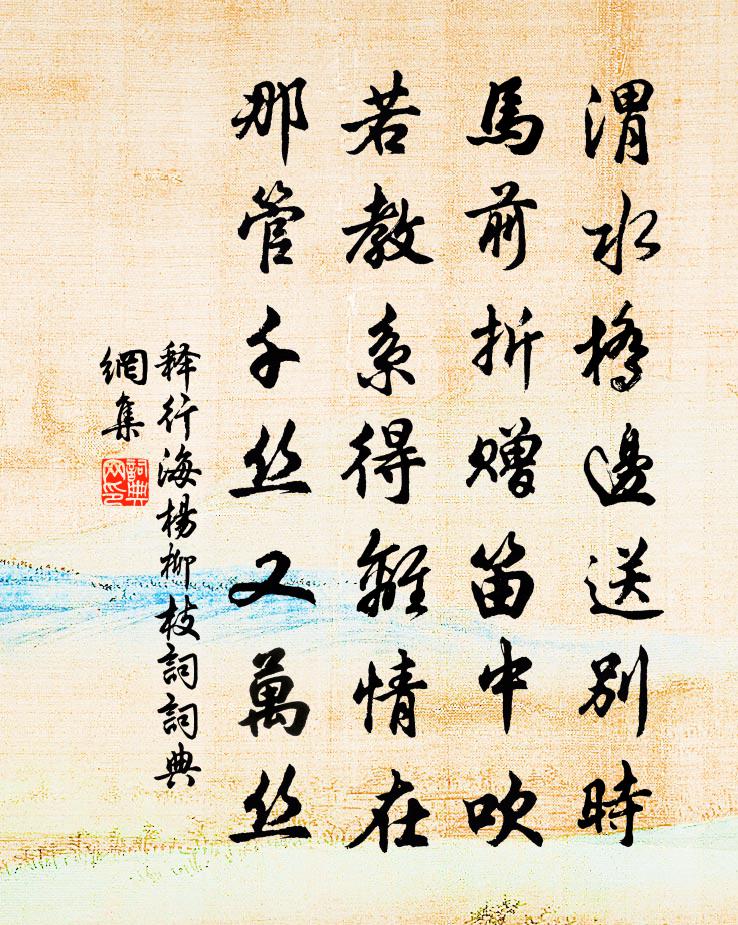 渭水橋邊送別時
馬前折赠笛中吹
若教系得離情在
那管千丝又萬丝
释行海楊柳枝詞詞典
網集
詞典
网印